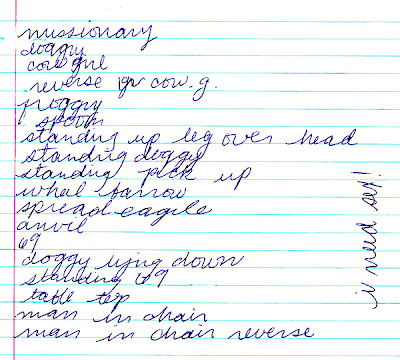 missionary
doggy
cow girl
reverse gr cow.g.
froggy
spoon
standing up leg over head
standing doggy
standing pick up
wheel barrow
spread eagle
anvil
69
doggy lying down
standing 69
table top
man in chair
man in chair reverse
i need sex!